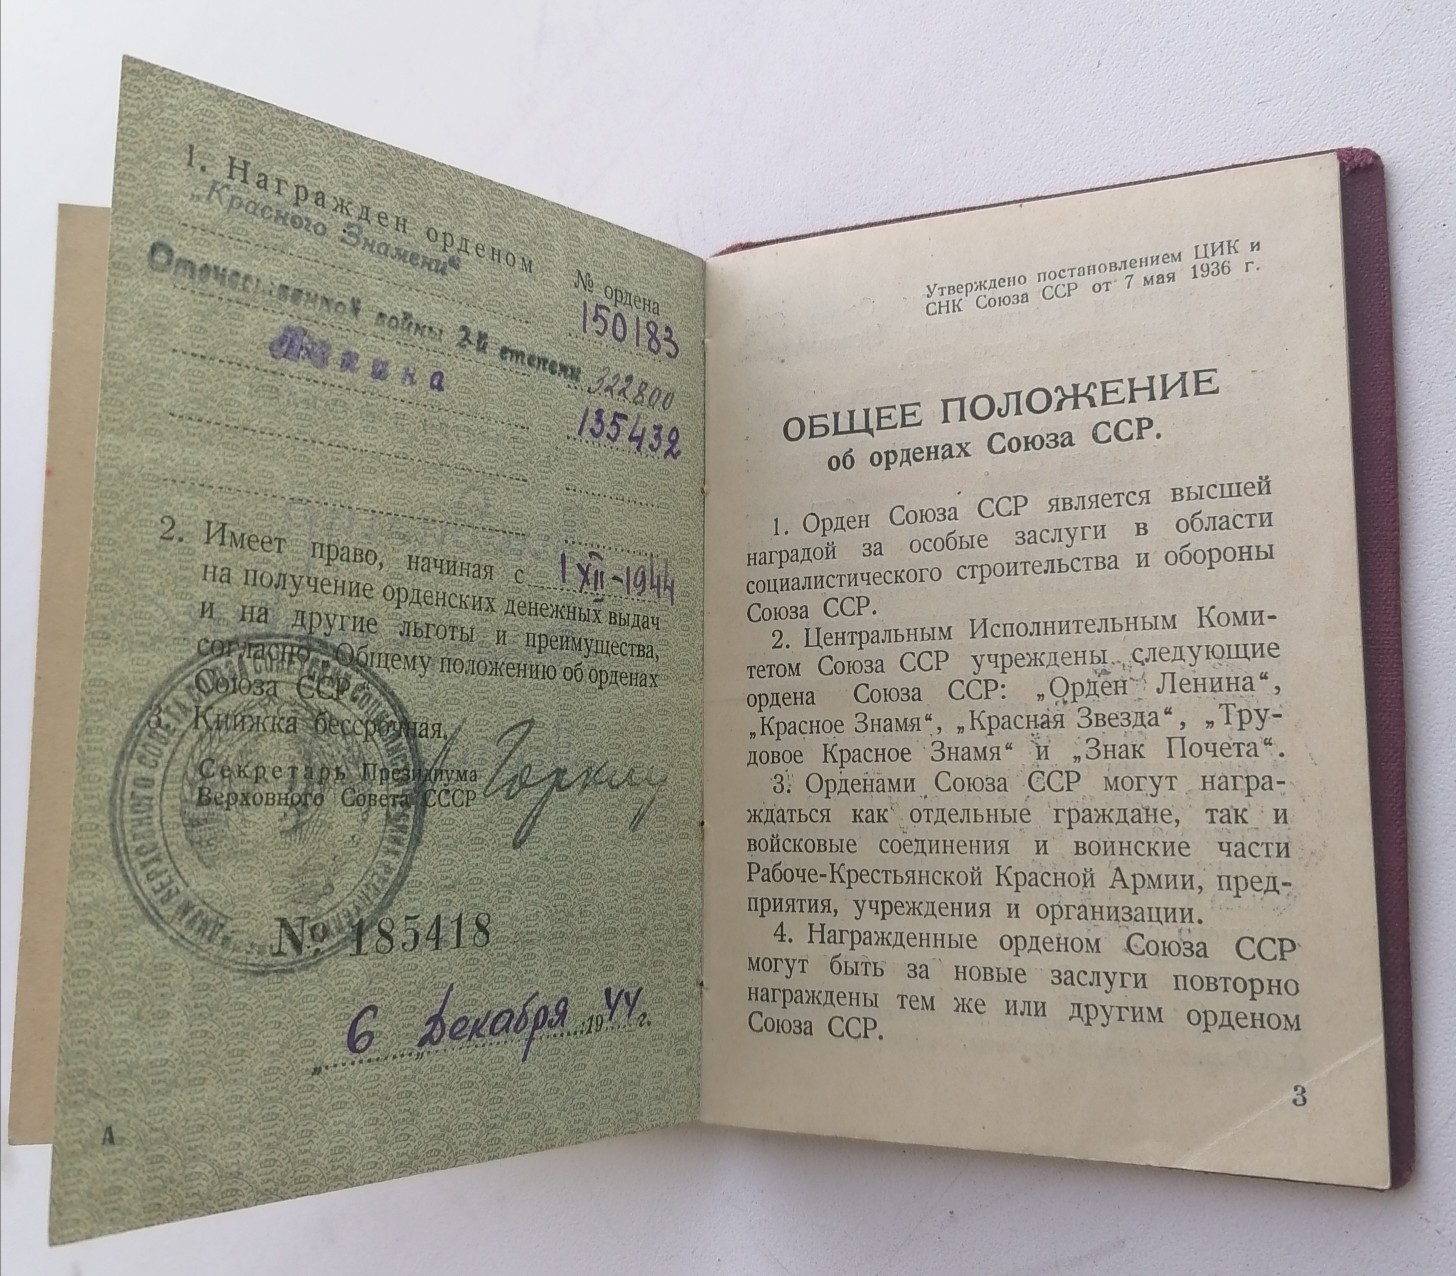 1. Награжден орденом № ордена
„Красного Знамени“ 150183
Отечественной войны 2-й степени 322800
Ленина 135432
2. Имеет право, начиная с 1 XII-1944
на получение орденских денежных выдач
и на другие льготы и преимущества,
согласно „Общему положению об орденах
Союза ССР“.
3. Книжка бессрочная.
Секретарь Президиума
Верховного Совета СССР
№ 185418
„ 6 “ Декабря 1944 г.
А
Утверждено постановлением ЦИК и
СНК Союза ССР от 7 мая 1936 г.
ОБЩЕЕ ПОЛОЖЕНИЕ
об орденах Союза ССР.
1. Орден Союза ССР является высшей
наградой за особые заслуги в области
социалистического строительства и обороны
Союза ССР.
2. Центральным Исполнительным Коми-
тетом Союза ССР учреждены следующие
ордена Союза ССР: „Орден Ленина“,
„Красное Знамя“, „Красная Звезда“, „Тру-
довое Красное Знамя“ и „Знак Почета“.
3. Орденами Союза ССР могут награ-
ждаться как отдельные граждане, так и
войсковые соединения и воинские части
Рабоче-Крестьянской Красной Армии, пред-
приятия, учреждения и организации.
4. Награжденные орденом Союза ССР
могут быть за новые заслуги повторно
награждены тем же или другим орденом
Союза ССР.
3